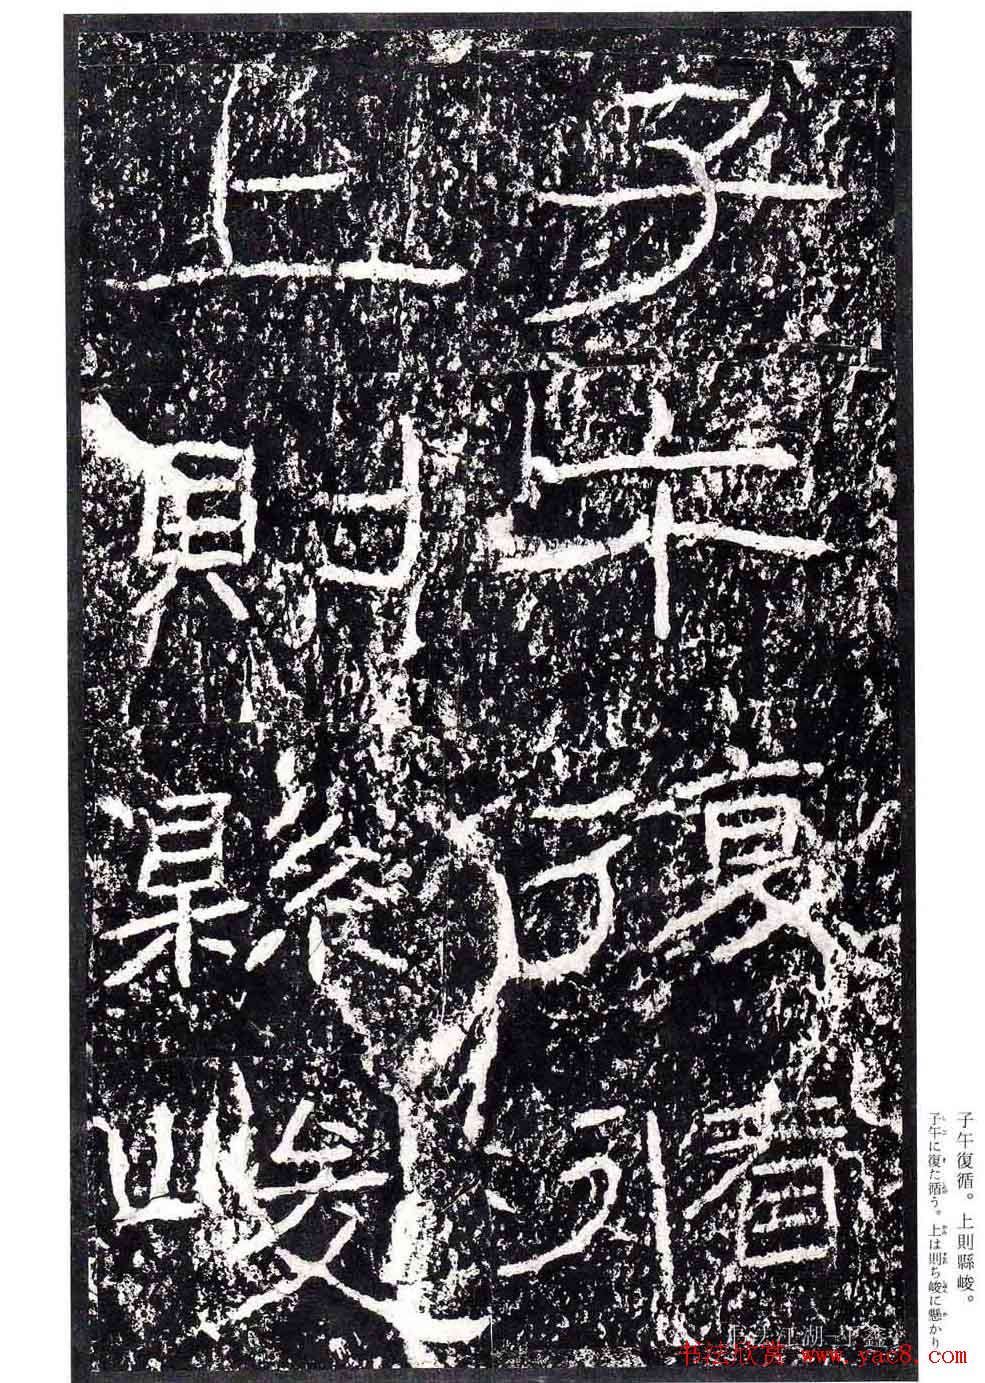 子午復循
上則縣峻
子午復循。上則縣峻。
子午に復た循う。上は則ち峻に懸かり
书法欣赏 www.yac8.com